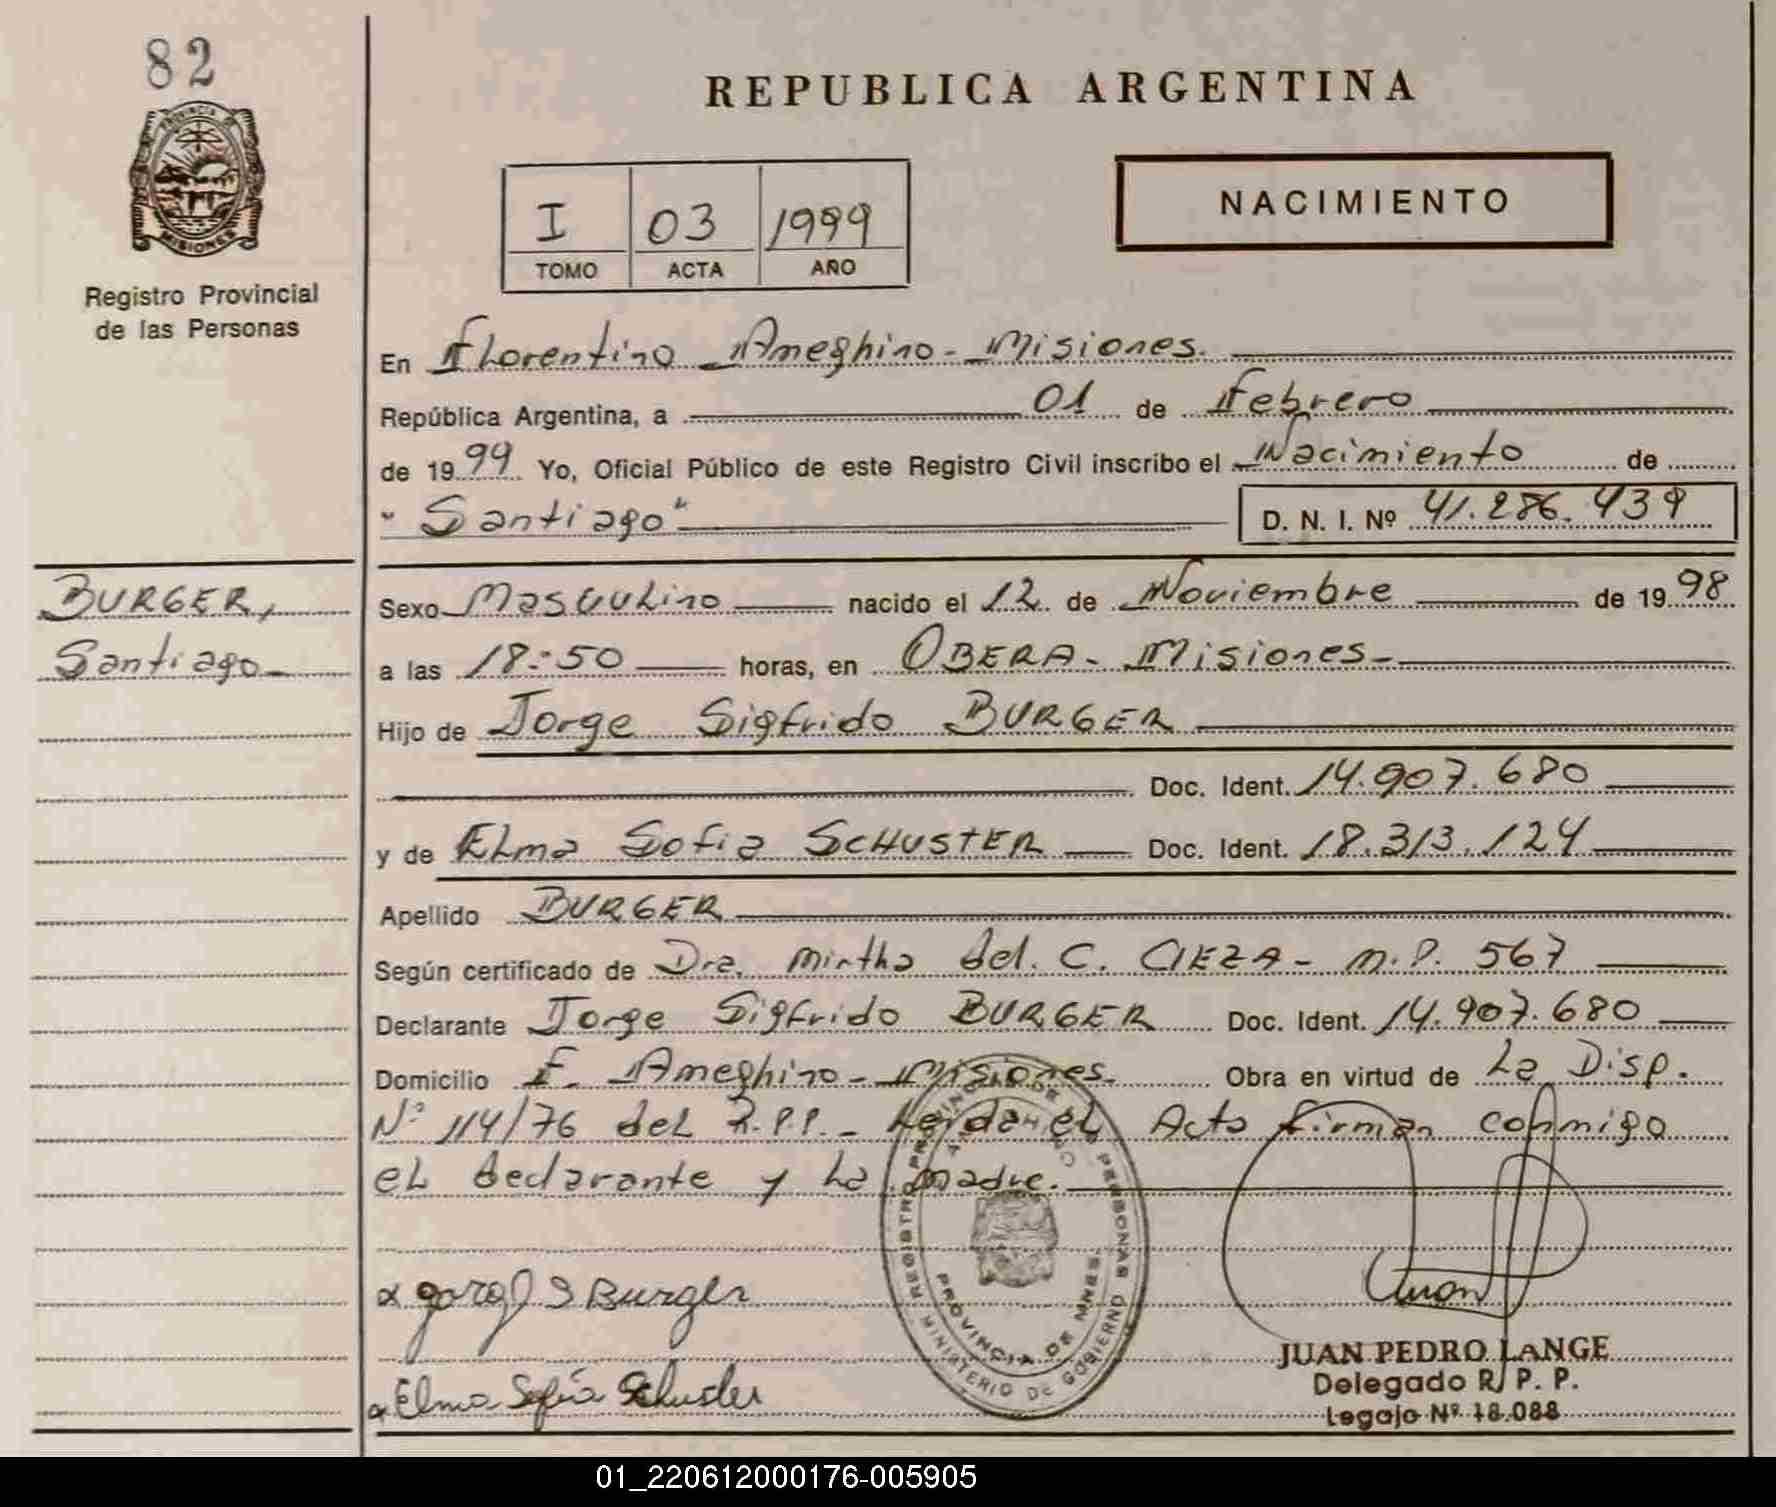 82
PROVINCIA DE
MISIONES
Registro Provincial
de las Personas
REPUBLICA ARGENTINA
I 03 1999
TOMO ACTA AÑO
NACIMIENTO
En Florentino Ameghino - Misiones.
República Argentina, a 01 de Febrero
de 1999 Yo, Oficial Público de este Registro Civil inscribo el Nacimiento de
"Santiago" D. N. I. Nº 41.286.439
BURGER,
Santiago
Sexo Masculino nacido el 12 de Noviembre de 1998
a las 18:50 horas, en OBERA - Misiones -
Hijo de Jorge Sigfrido BURGER
Doc. Ident. 14.907.680
y de Elma Sofia SCHUSTER Doc. Ident. 18.313.124
Apellido BURGER
Según certificado de Dra. Mirtha del. C. CIEZA - M.P. 567
Declarante Jorge Sigfrido BURGER Doc. Ident. 14.907.680
Domicilio F. Ameghino - Misiones. Obra en virtud de La Disp.
Nº 114/76 del R.P.P. - Leida el Acta firman conmigo
el declarante y la madre.
REGISTRO PROVINCIAL DE PERSONAS
PROVINCIA DE MNES.
MINISTERIO DE GOBIERNO
x Jorge S Burger
x Elma Sofia Schuster
JUAN PEDRO LANGE
Delegado R. P. P.
Legajo Nº 18.088
01_220612000176-005905